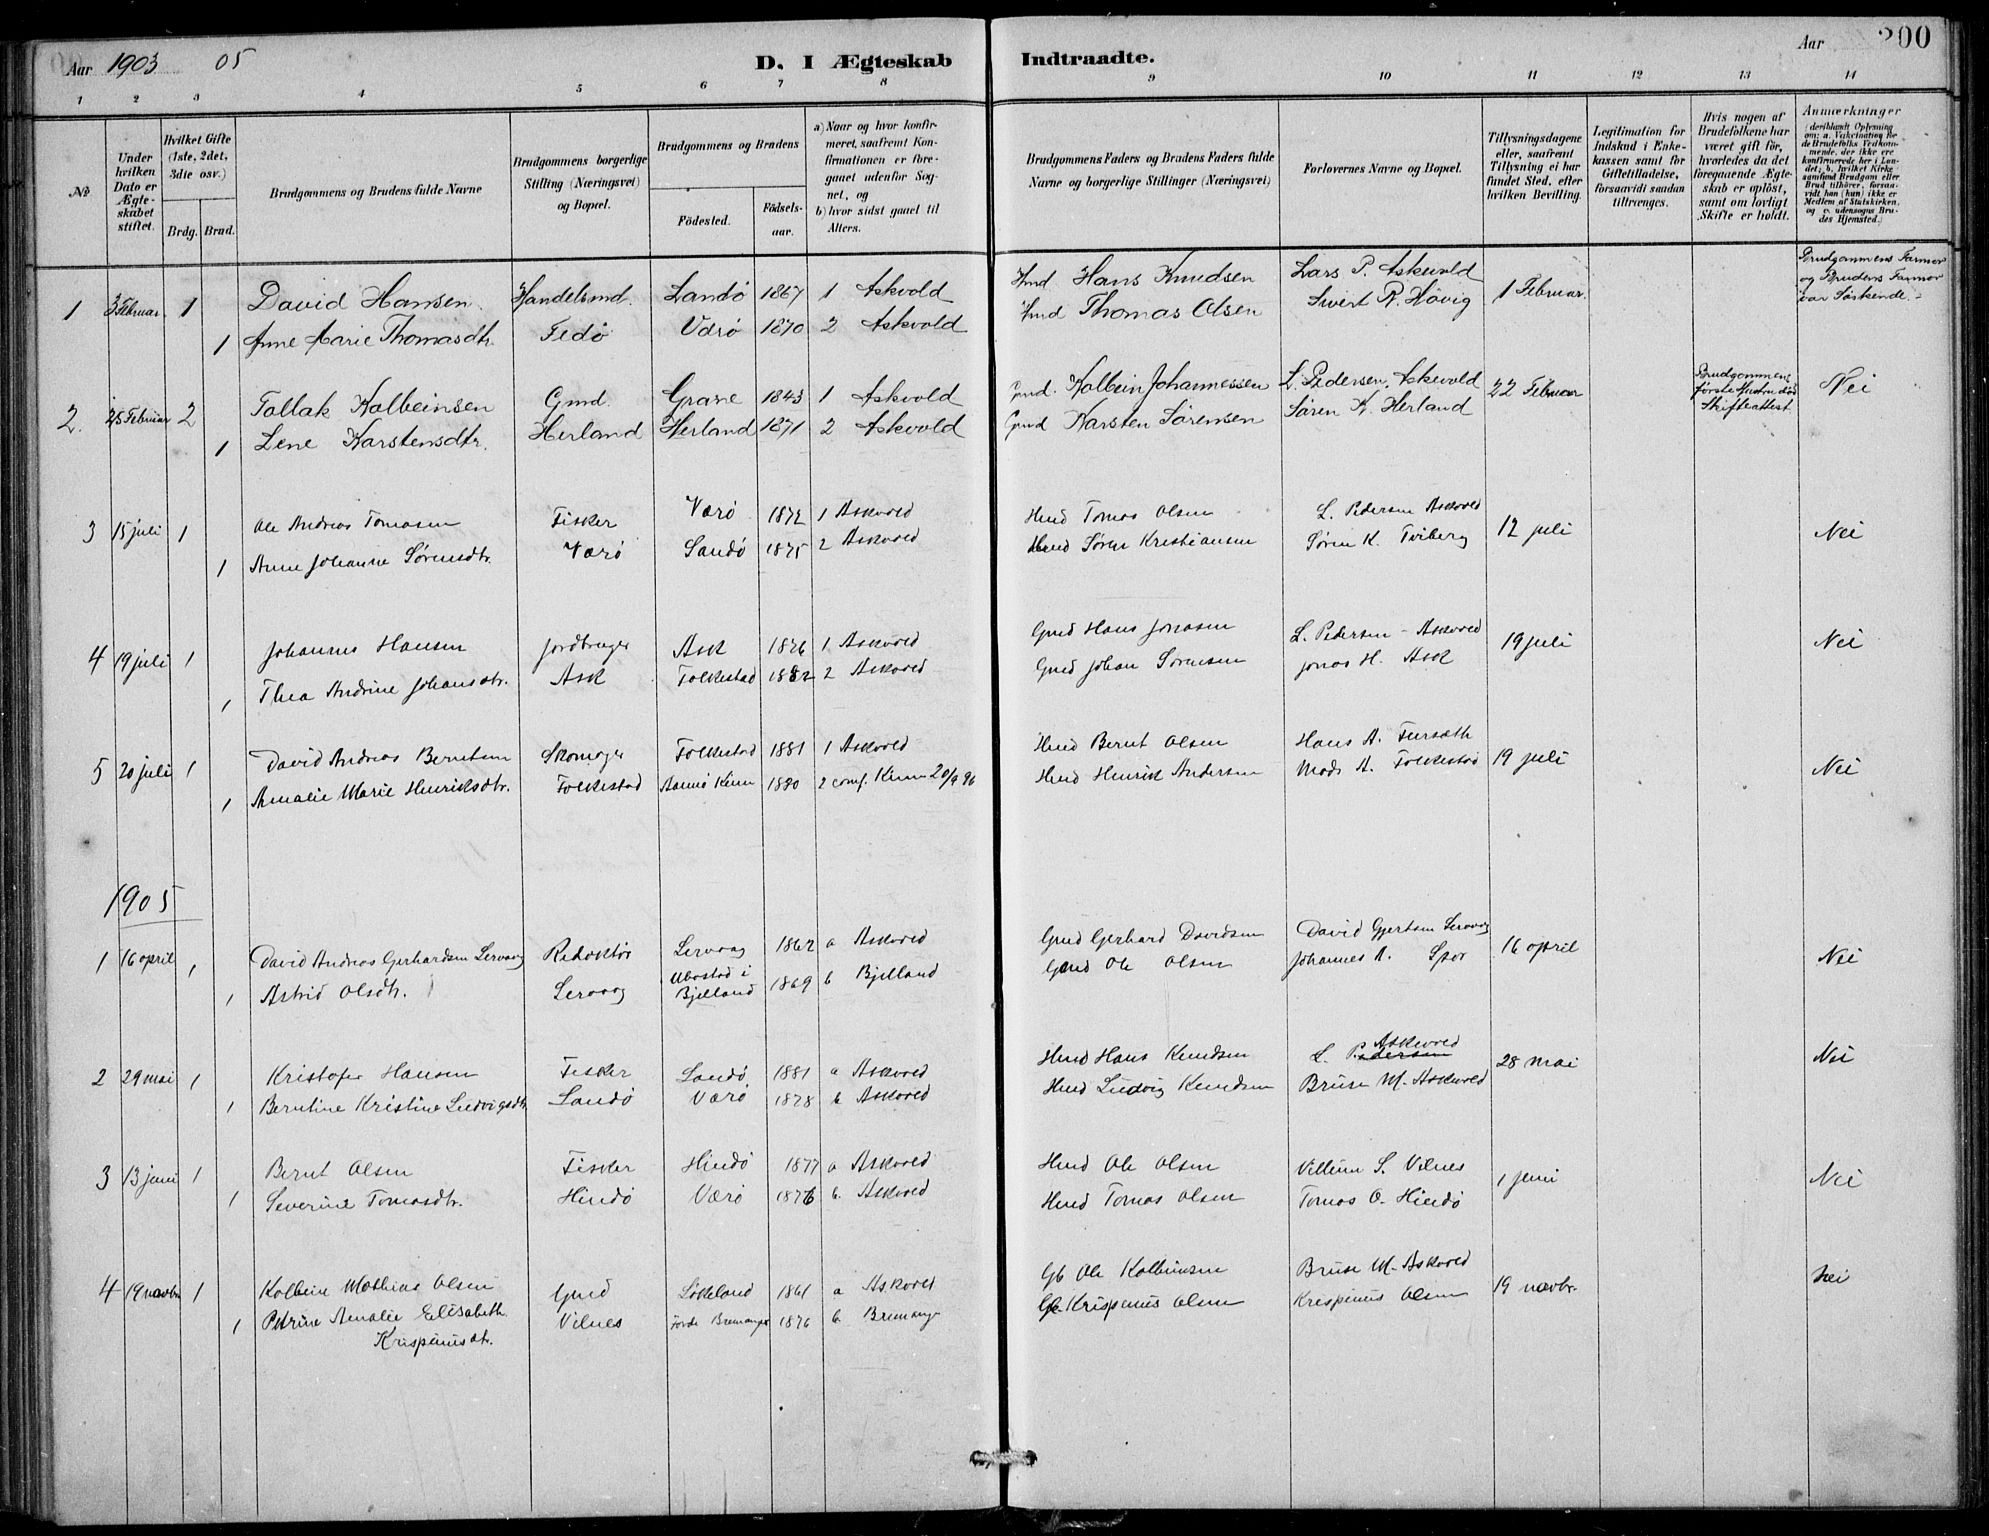 Aar 1903 05 D. I Ægteskab Indtraadte. Aar 200
1 2 3 4 5 6 7 8 9 10 11 12 13 14
No
Under hvilken Dato er Ægteskabet stiftet.
Hvilket Gifte (1ste, 2det, 3die osv.)
Brdg. Brud.
Brudgommens og Brudens fulde Navne
Brudgommens borgerlige Stilling (Næringsvei) og Bopæl.
Brudgommens og Brudens
Födested. Födselsaar.
a) Naar og hvor konfirmeret, saafremt Konfirmationen er foregaaet udenfor Sognet, og
b) hvor sidst gaaet til Alters.
Brudgommens Faders og Brudens Faders fulde Navne og borgerlige Stillinger (Næringsvei)
Forlovernes Navne og Bopæl.
Tillysningsdagene eller, saafremt Tillysning ei har fundet Sted, efter hvilken Bevilling.
Legitimation for Indskud i Enkekassen samt for Giftetilladelse, forsaavidt saadan tiltrænges.
Hvis nogen af Brudefolkene har været gift för, hvorledes da det foregaaende Ægteskab er oplöst, samt om lovligt Skifte er holdt.
Anmærkninger (deriblandt Oplysning om: a. Vakcination for de Brudefolks Vedkommende, der ikke ere konfirmerede her i Landet; b. hvilket Kirkesamfund Brudgom eller Brud tilhörer, forsaavidt han (hun) ikke er Medlem af Statskirken, og c. udensogns Brudes Hjemsted.)
1 3 Februar 1 David Hansen Handelsmd. Landö 1867 1 Askvold Hmd Hans Knudsen Lars P. Askvold 1 Februar. Brudgommens Farmor og Brudens Farmor var Söskende.
1 Anne Marie Thomasdtr. Fedö Værö 1870 2 Askvold Hmd Thomas Olsen Sivert R. Hövig
2. 25 Februar 2 Tollak Kolbeinsen Gmd. Grane 1843 1 Askvold Gmd. Kolbein Johannessen L. Pedersen, Askvold 22 Februar Brudgommens förste Hustru död Skifteattest. Nei
1 Lene Karstensdtr. Herland Herland 1871 2 Askvold Gmd Karsten Sörensen Sören K. Herland
3 15 juli 1 Ole Andreas Tomasen Fisker Værö 1872 1 Askvold Hmd Tomas Olsen L. Pedersen Askvold 12 juli Nei
1 Anne Johanne Sørensdtr. Værö Sandö 1875 2 Askvold Hmd Sören Kristiansen Sören K. Tviberg
4 19 juli 1 Johannes Hansen Jordbruger Ask 1876 1 Askvold Gmd Hans Jonasen L. Pedersen - Askvold 19 juli Nei
1 Thea Andrine Johansdtr. Ask Folkestad 1882 2 Askvold Gmd Johan Sørensen Jonas H. Ask
5 20 juli 1 David Andreas Berntsen Skomager Folkestad 1881 1 Askvold Hmd Bernt Olsen Hans A. Fursæth 19 juli Nei
1 Amalie Marie Henriksdtr. Folkestad Kinn 1880 2 conf. Kinn 20/9 96 Hmd Henrik Andersen Mads A. Folkestad
1905
1 16 april 1 David Andreas Gerhardsen Lervaag Redaktör Lervaag 1862 a Askvold Gmd Gerhard Davidsen David Gjertsen Lervaag 16 april Nei
1 Astrid Olsdtr. Lervaag Ubostad i Bjelland 1869 b Bjelland Gmd Ole Olsen Johannes A. Spor
2 29 mai 1 Kristofer Hansen Fisker Landö 1881 a Askvold Hmd Hans Knudsen L. Pedersen Askvold 28 mai Nei
1 Berntine Kristine Ludvigsdtr Landö Værö 1878 b Askvold Hmd Ludvig Knudsen Bruse M. Askvold
3 13 juni 1 Bernt Olsen Fisker Hindö 1877 a Askvold Hmd Ole Olsen Villum S. Vilnes 1 juni Nei
1 Severine Tomasdtr. Hindö Værö 1876 b. Askvold Hmd Tomas Olsen Tomas O. Hindö
4 19 novbr 1 Kolbein Mathias Olsen Gmd Lökeland 1861 a Askvold Gb Ole Kolbeinsen Bruse M. Askvold 19 novbr. Nei
1 Petrine Amalie Elisabeth Krispinusdtr. Vilnes Förde Bremanger 1876 b. Bremanger Gb Krispinus Olsen Krespinus Olsen